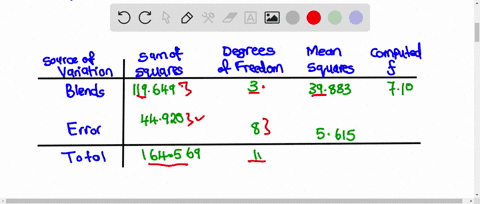 Source of Variation Sum of Squares Degrees of Freedom Mean Squares Computed f
Blends 119.649 3 39.883 7.10
Error 44.920 8 5.615
Total 164.569 11